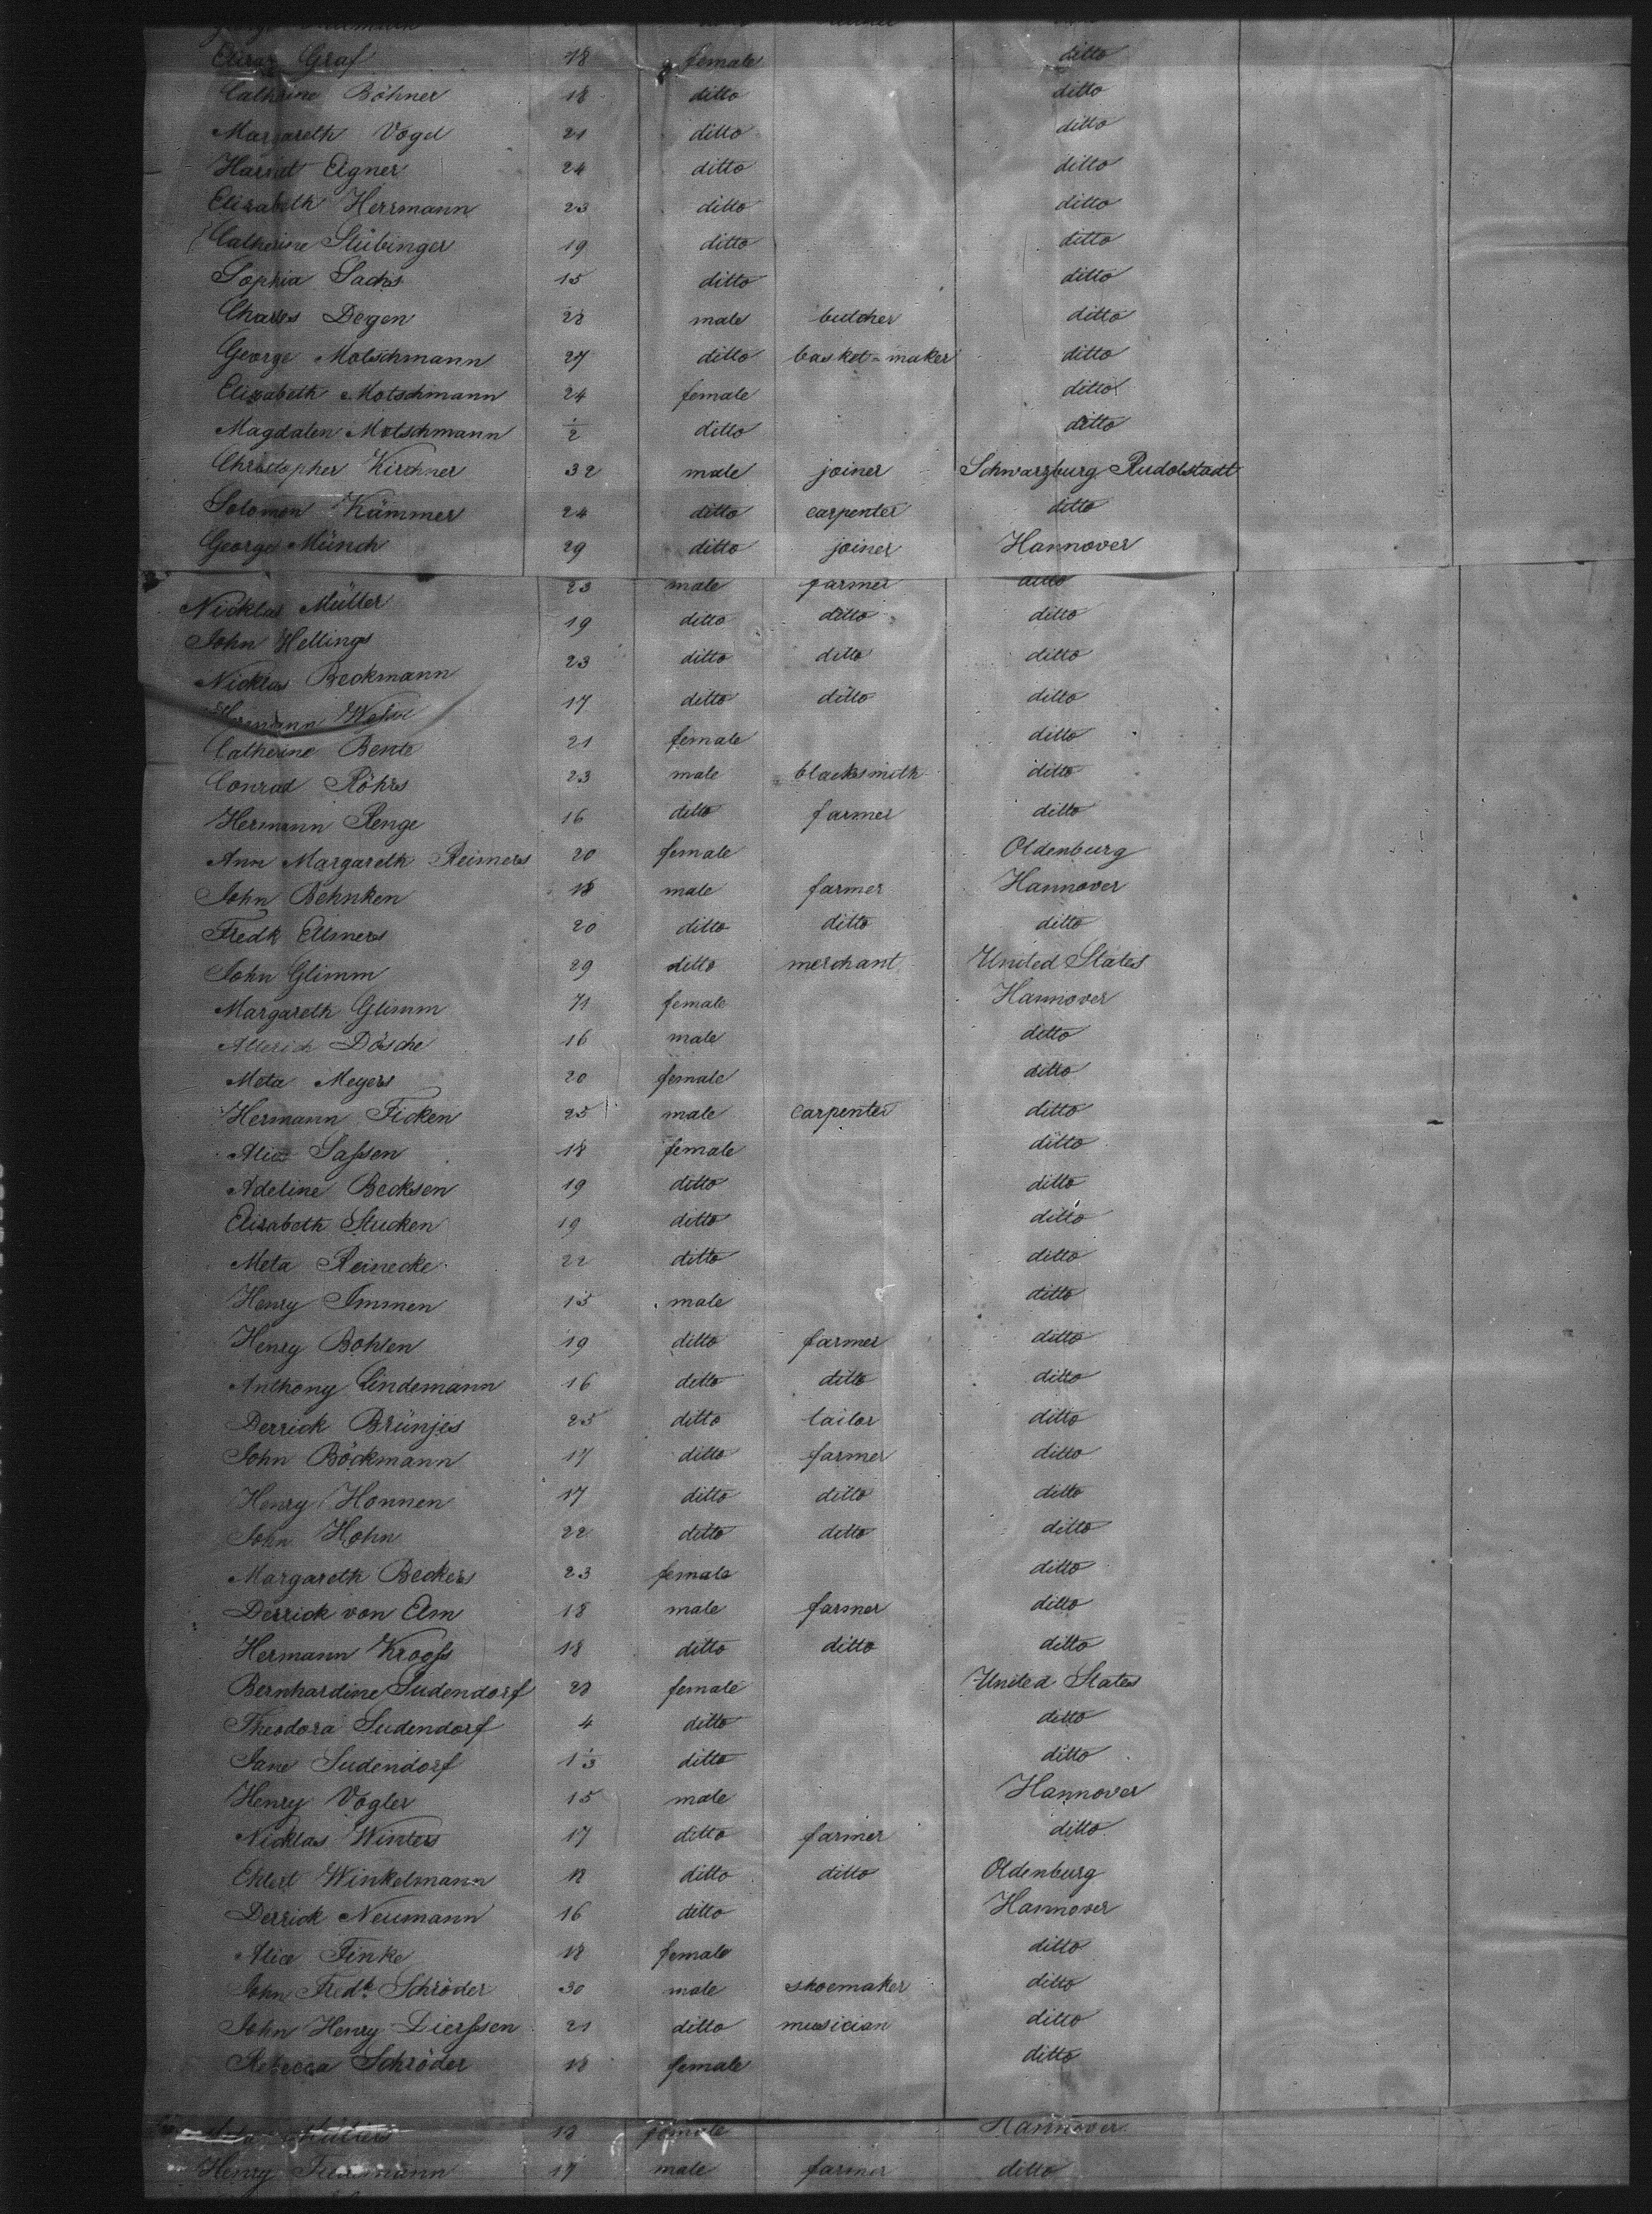 Graf 18 female ditto
Catherine Böhner 18 ditto ditto
Margareth Vogel 21 ditto ditto
Harriet Eigner 24 ditto ditto
Elisabeth Herrmann 23 ditto ditto
Catherine Stübinger 19 ditto ditto
Sophia Sachs 15 ditto ditto
Charles Degen 28 male butcher ditto
George Motschmann 27 ditto basket-maker ditto
Elizabeth Motschmann 24 female ditto
Magdalen Motschmann 1/2 ditto ditto
Christopher Kirchner 32 male joiner Schwarzburg Rudolstadt
Solomon Kämmer 24 ditto carpenter ditto
George Münch 29 ditto joiner Hannover
Nicklas Müller 23 male farmer ditto
John Hellings 19 ditto ditto ditto
Nicklas Beckmann 23 ditto ditto ditto
Hermann 17 ditto ditto ditto
Catherine Bente 21 female ditto
Conrad Röhrs 23 male blacksmith ditto
Hermann Renge 16 ditto farmer ditto
Ann Margareth Reimers 20 female Oldenburg
John Behnken 18 male farmer Hannover
Fredk Ellmers 20 ditto ditto ditto
John Glimm 29 ditto merchant United States
Margareth Glimm 71 female Hannover
Allerich Dösche 16 male ditto
Meta Meyers 20 female ditto
Hermann Ficken 25 male carpenter ditto
Alice Saßsen 18 female ditto
Adeline Becksen 19 ditto ditto
Elisabeth Stucken 19 ditto ditto
Meta Reinecke 22 ditto ditto
Henry Immen 15 male ditto
Henry Bohlen 19 ditto farmer ditto
Anthony Lindemann 16 ditto ditto ditto
Derrick Brünjes 25 ditto tailor ditto
John Böckmann 17 ditto farmer ditto
Henry Honnen 17 ditto ditto ditto
John Hohn 22 ditto ditto ditto
Margareth Beckers 23 female ditto
Derrick von Elm 18 male farmer ditto
Hermann Krogss 18 ditto ditto ditto
Bernhardine Sudendorf 28 female United States
Theodora Sudendorf 4 ditto ditto
Jane Sudendorf 1 1/3 ditto ditto
Henry Vogler 15 male Hannover
Nicklas Winters 17 ditto farmer ditto
Ehlert Winkelmann 18 ditto ditto Oldenburg
Derrick Neumann 16 ditto Hannover
Alice Finke 18 female ditto
John Fredk Schröder 30 male shoemaker ditto
John Henry Dierßsen 21 ditto musician ditto
Rebecca Schröder 18 female ditto
18 female Hannover
Henry 17 male farmer ditto